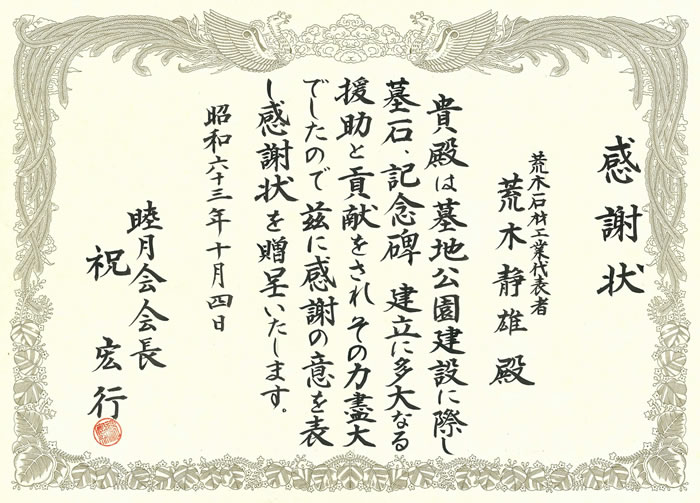 感謝状
荒木石材工業代表者
荒木静雄殿
貴殿は墓地公園建設に際し
墓石、記念碑 建立に多大なる
援助と貢献をされ その力盡大
でしたので 茲に感謝の意を表
し感謝状を贈呈いたします。
昭和六十三年十月四日
睦月会会長
祝宏行